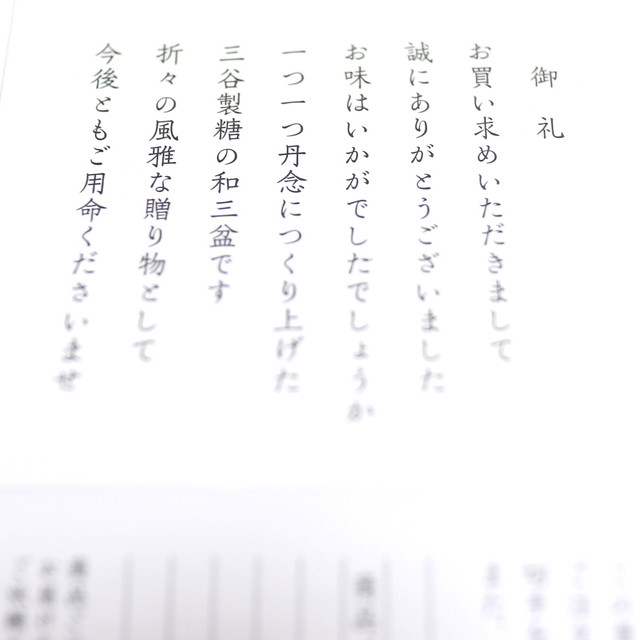 御礼
お買い求めいただきまして
誠にありがとうございました
お味はいかがでしたでしょうか
一つ一つ丹念につくり上げた
三谷製糖の和三盆です
折々の風雅な贈り物として
今後ともご用命くださいませ